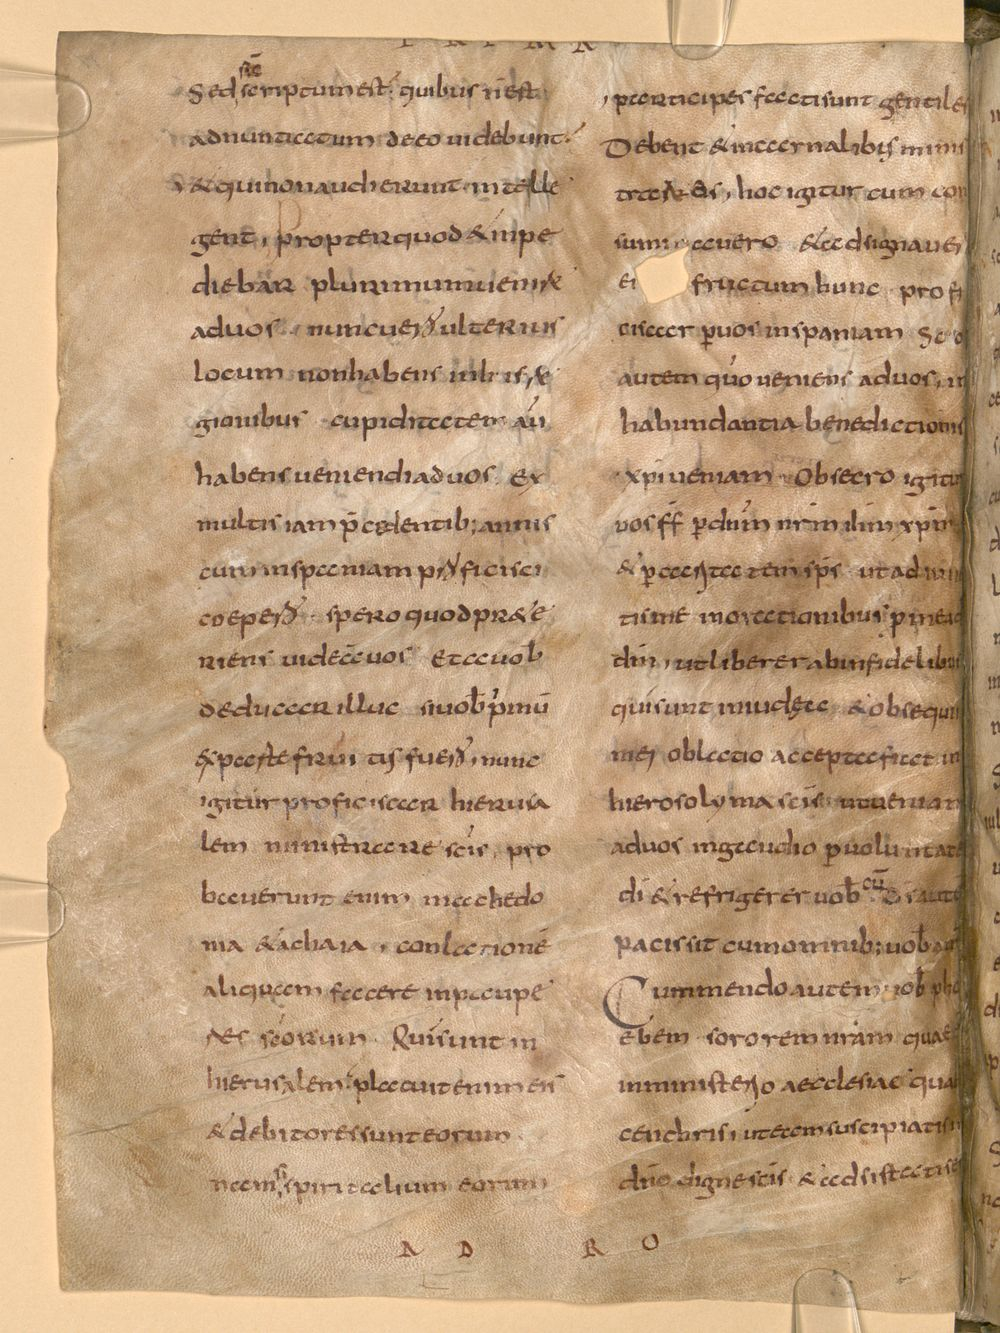 sed sic scriptum est quibus n̄ est
adnuntiatum de eo videbunt
& qui non audierunt intelle
gent, propter quod & inpe
diebar plurimum venire
ad vos. nunc vero ulterius
locum non habens in his re
gionibus cupiditatem aū
habens veniendi ad vos. Ex
multis iam p̄cedentib; annis
cum inspaniam proficisci
coepero. spero quod præ&e
riens videā vos Et a vob̄
deducar illuc si vob̄ primū
ex parte fruitus fuero, nunc
igitur proficiscar hierusa
lem ministrare scīs, pro
baverunt enim machedo
nia & achaia, conlationē
aliquam facere in paupe
res sc̄orum Qui sunt in
hierusalem. placuit enim eis
& debitores sunt eorum
nam si spiritalium eorum
participes facti sunt gentiles
Debent & in carnalibus minis
trare eis, hoc igitur cum con
sum avero & adsignaver
ei fructum hunc profi
ciscar p̄ vos in spaniam Sc
autem qūo veniens ad vos, in
habundantia benedictionis
xp̄i veniam. Obsecro igitur
vos ff̄ p̄ dn̄m nrm̄ ihm̄ xp̄m
& p̄ caritatem sp̄s ut adiuv
tis me in orationibus p̄ me ad
dm̄, ut liberer ab infidelibus
qui sunt in iudęa & obsequii
mei oblatio accepta fiat in
hierosolyma scīs ut veniam
ad vos in gaudio p̄ voluntatē
dī & refrigerer vobcū D̄s autē
pacis sit cum omnib; vob̄
Cummendo autem vob̄ phe
ebem sororem nram̄ quae
in ministerio aecclesiae quae
cenchris, ut eam suscipiatis in
dn̄o digne scīs & adsistatis e
A D R O